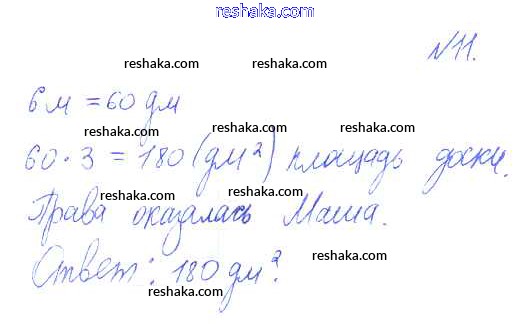 reshaka.com
№11.
reshaka.com reshaka.com
6 м = 60 дм
reshaka.com reshaka.com
60 · 3 = 180 (дм²) площадь доски.
reshaka.com reshaka.com
Права оказалась Маша.
reshaka.com reshaka.com
Ответ: 180 дм².
reshaka.com